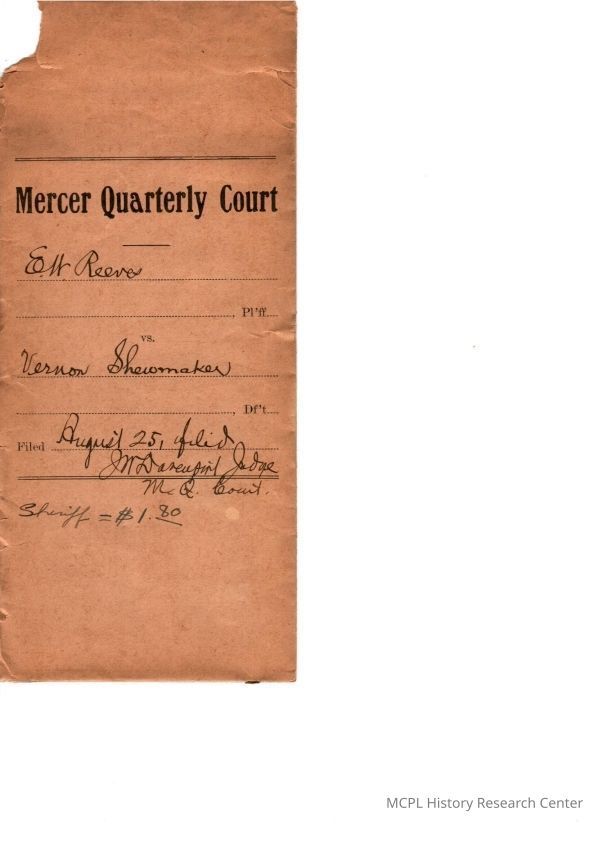 Mercer Quarterly Court
E.W. Reeves
, Pl'ff.
vs.
Vernon Shewmaker
, Df't.
Filed August 25, filed
JW Davenport Judge
M. Q. Court.
Sheriff = $1.80
MCPL History Research Center